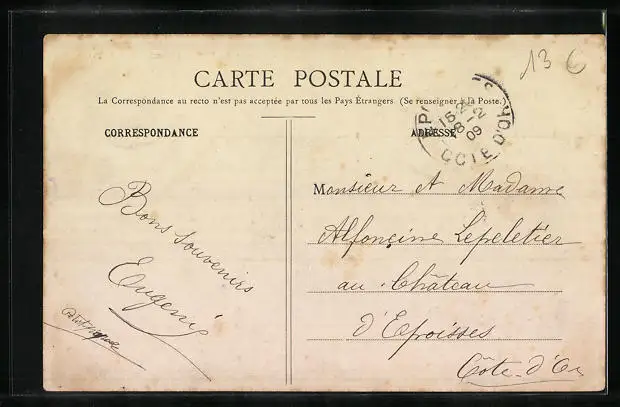 13 6
CARTE POSTALE
La Correspondance au recto n'est pas acceptée par tous les Pays Étrangers. (Se renseigner à la Poste.)
CORRESPONDANCE
ADRESSE
15
8-2
09
Bons Souvenirs
Eugenie
Monsieur et Madame
Alfoncine Lepeletier
au Château
d'Epoisses
Côte-d'Or